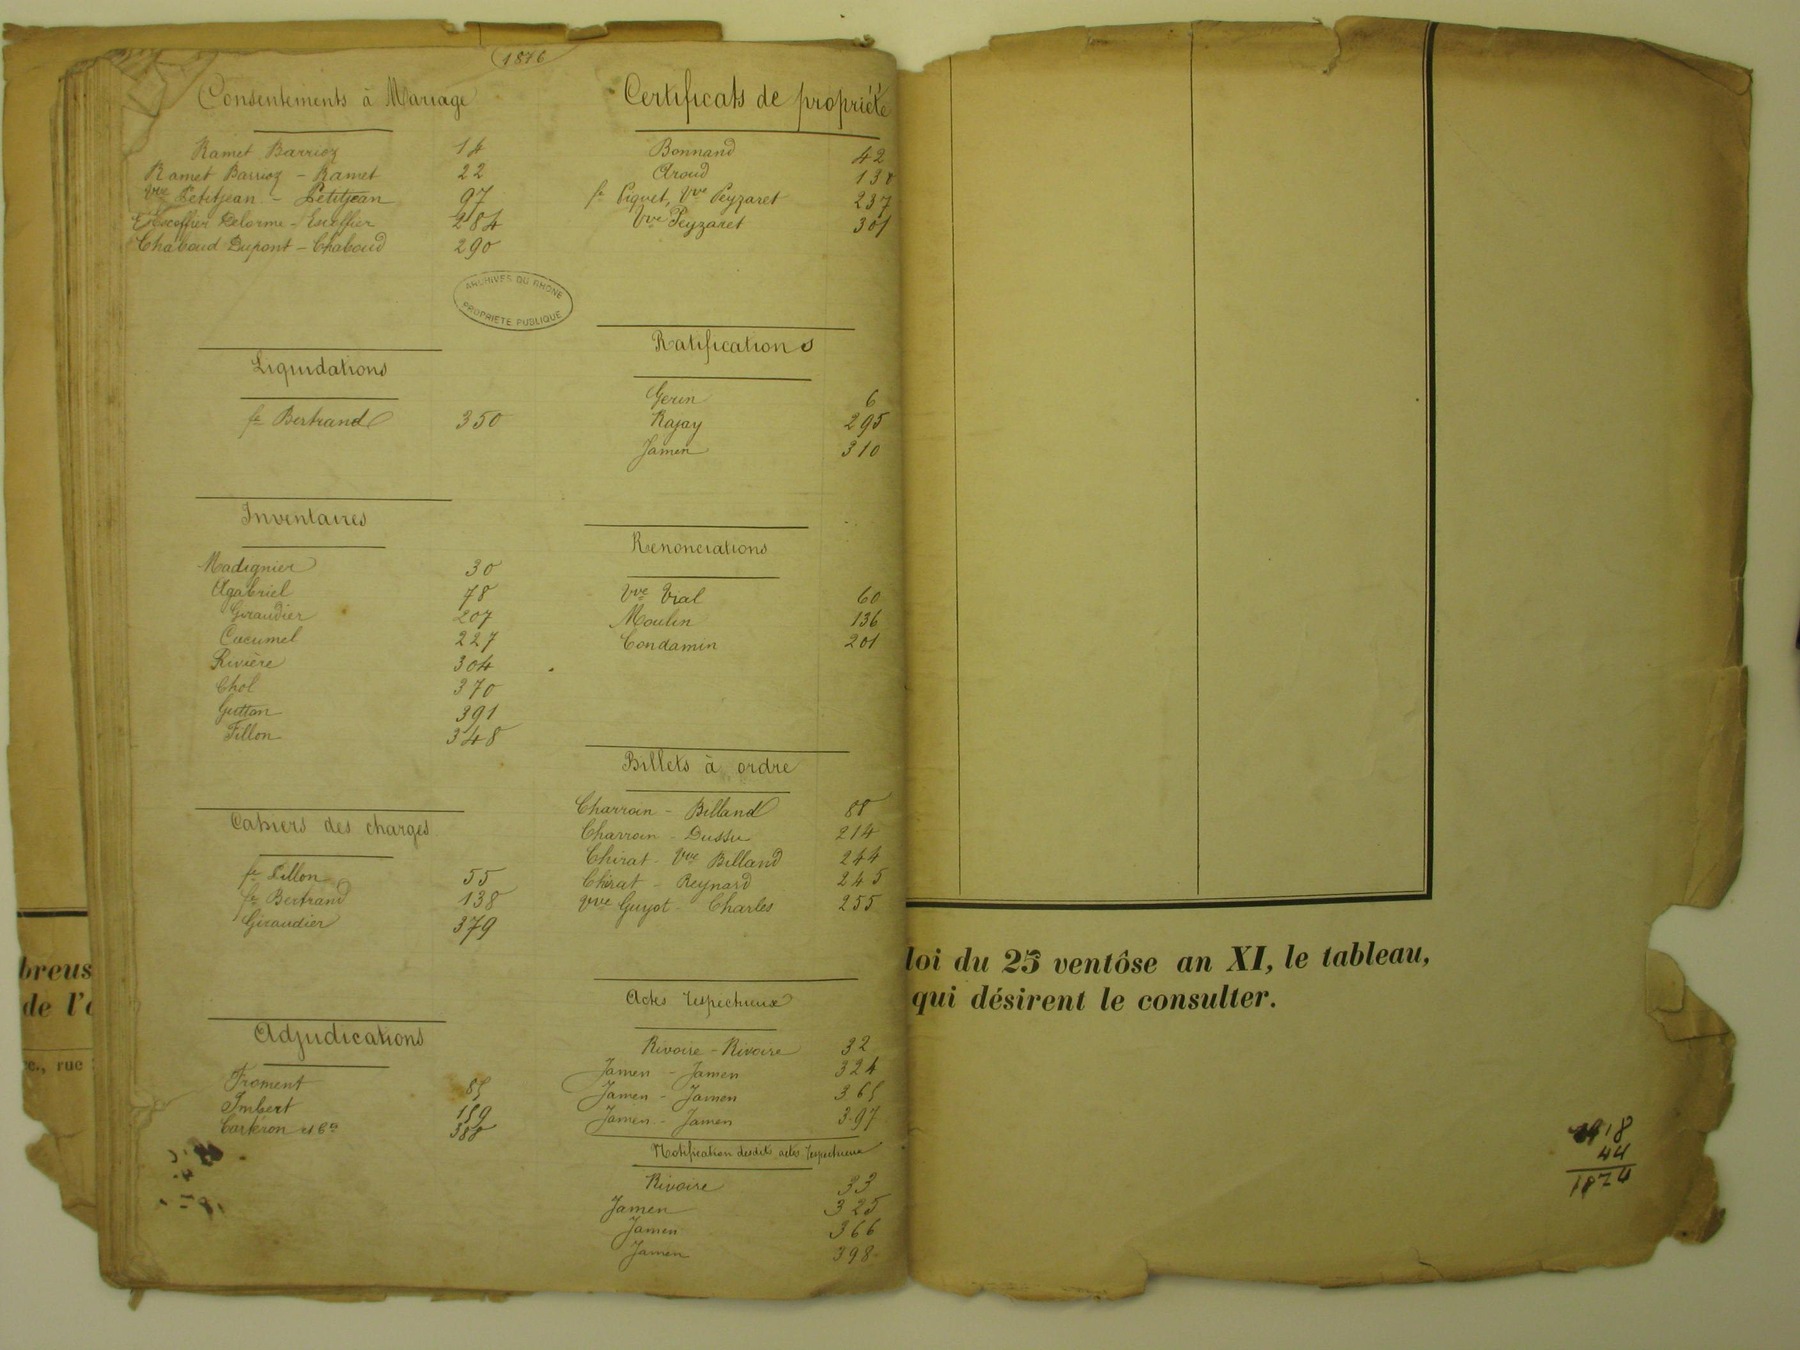 1876
Consentements à Mariage
Ramet Barrioz 14
Ramet Barrioz - Ramet 22
Vve Petitjean - Petitjean 97
Escoffier Delorme - Escoffier 284
Chaboud Dupont - Chaboud 290
ARCHIVES DU RHONE
PROPRIETE PUBLIQUE
Liquidations
fe Bertrand 350
Inventaires
Madignier 30
Agabriel 78
Giraudier 207
Cucumel 227
Rivière 304
Chol 370
Gutton 391
Fillon 348
Cahiers des charges
fe Fillon 55
fe Bertrand 138
Giraudier 379
Adjudications
Froment 85
Imbert 159
Carteron et Cie 388
Certificats de propriété
Bonnand 42
Aroud 138
fe Piquet, Vve Peyzaret 237
Vve Peyzaret 301
Ratifications
Gerin 6
Rajay 295
Jamen 310
Renonciations
Vve Vial 60
Moulin 136
Condamin 201
Billets à ordre
Charroin - Billand 88
Charroin - Dussu 214
Chirat - Vve Billand 244
Chirat - Reynard 245
Vve Guyot - Charles 255
Actes respectueux
Rivoire - Rivoire 32
Jamen - Jamen 324
Jamen - Jamen 365
Jamen - Jamen 397
Notification desdits actes respectueux
Rivoire 33
Jamen 325
Jamen 366
Jamen 398
breus
de l'
rue
loi du 25 ventôse an XI, le tableau,
qui désirent le consulter.
44
1874